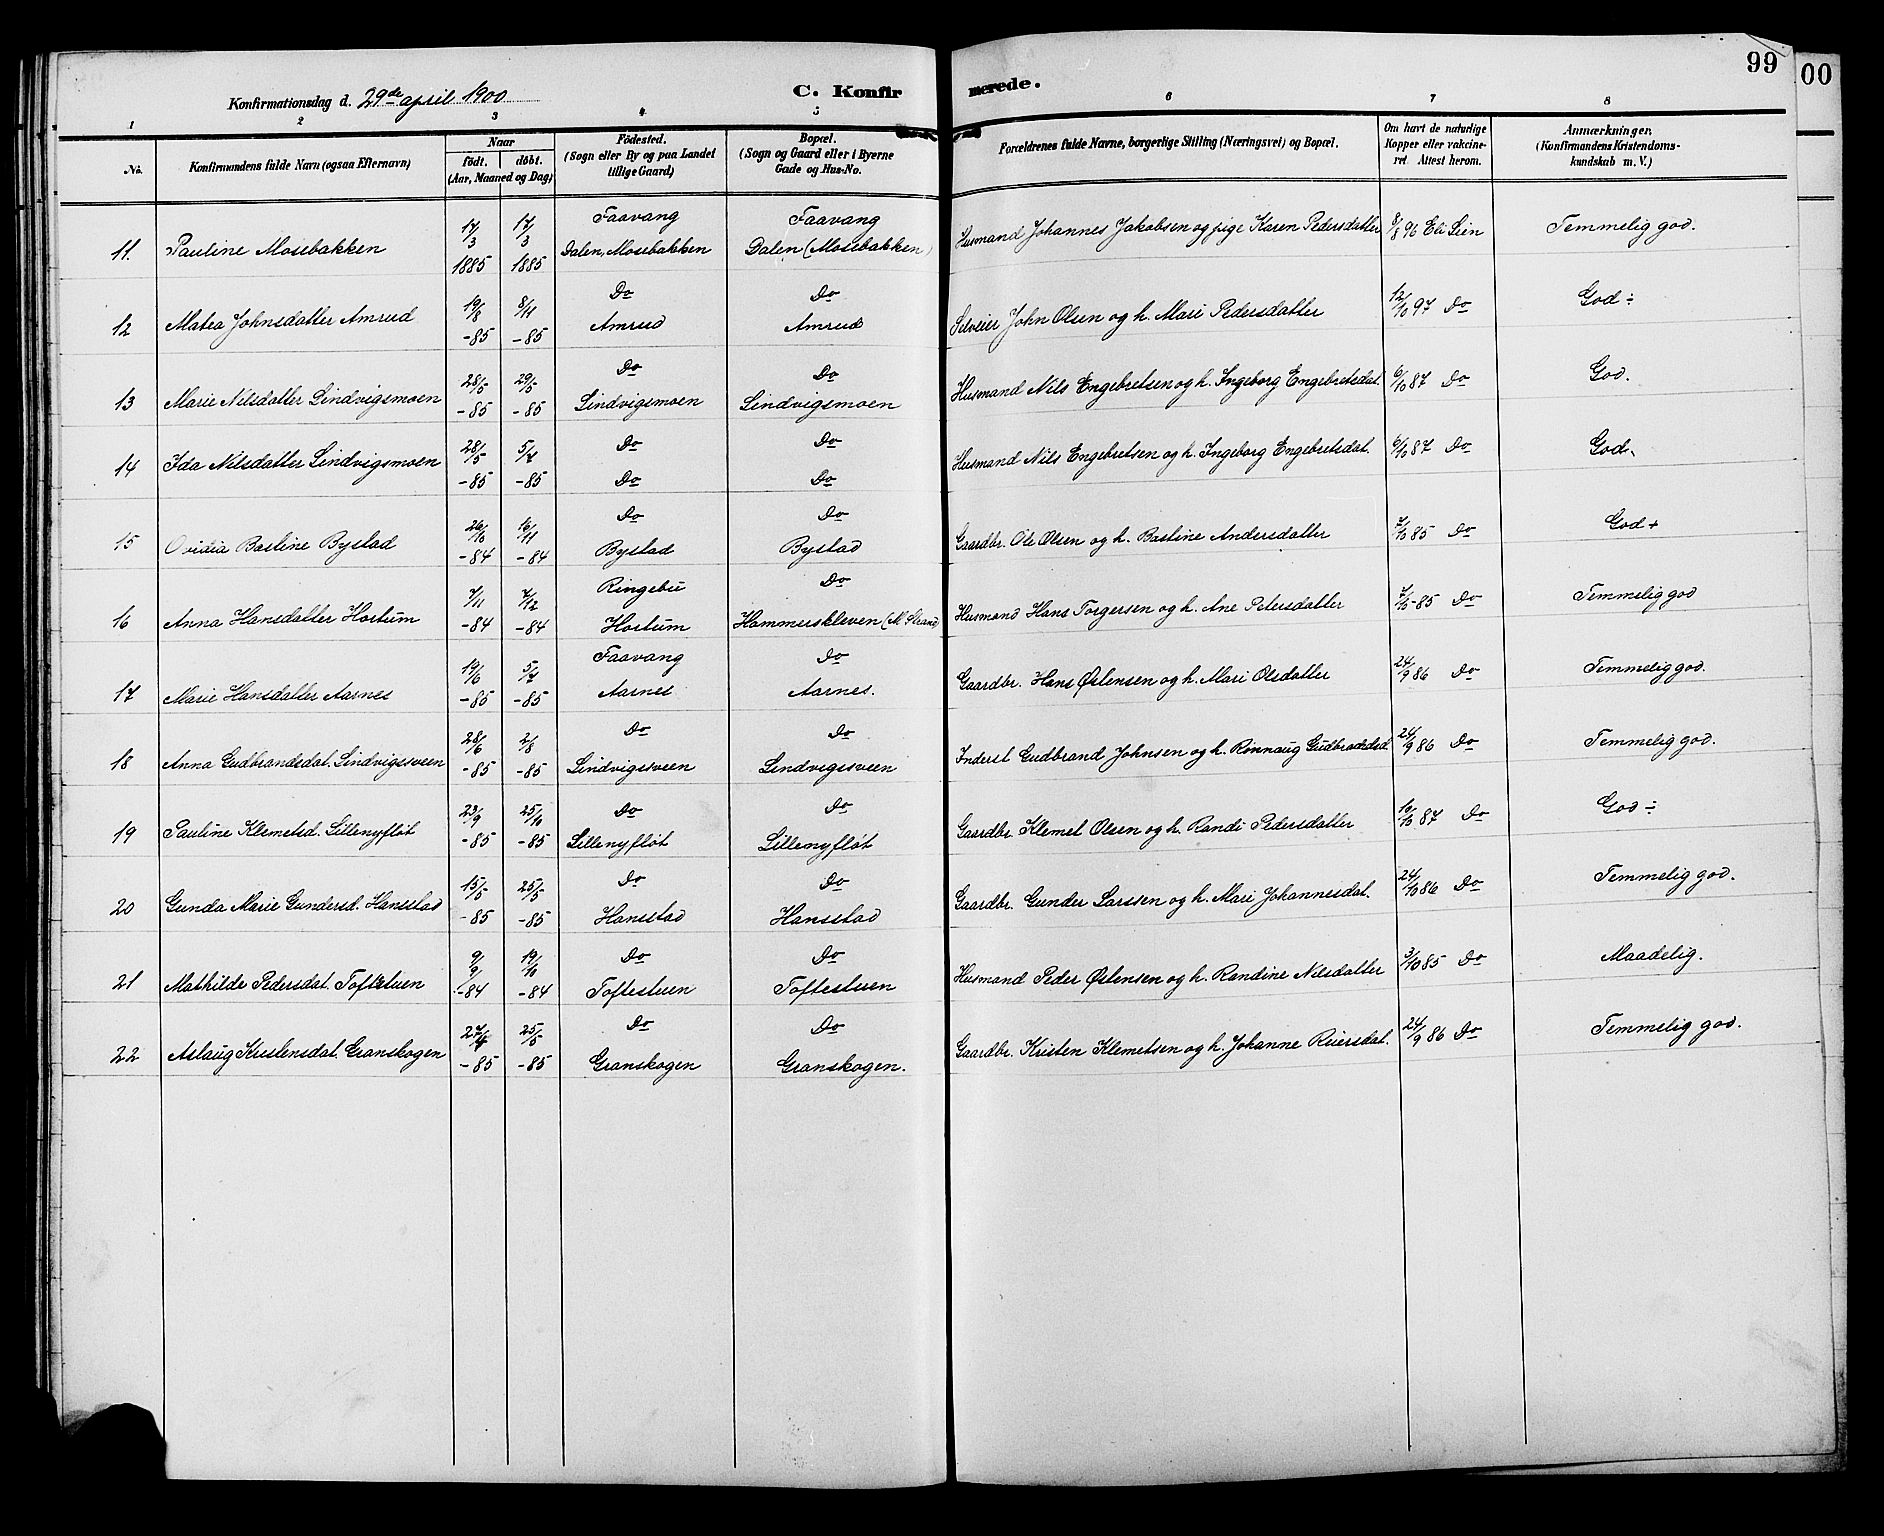 99
00
Konfirmationsdag d. 29de april 1900
C. Konfirmerede.
1 2 3 4 5 6 7 8
No. Konfirmandens fulde Navn (ogsaa Efternavn) Naar födt. döbt. (Aar, Maaned og Dag) Födested. (Sogn eller By og paa Landet tillige Gaard) Bopæl. (Sogn og Gaard eller i Byerne Gade og Hus-No. Forældrenes fulde Navne, borgerlige Stilling (Næringsvei) og Bopæl. Om havt de naturlige Kopper eller vakcineret. Attest herom. Anmærkninger. (Konfirmandens Kristendomskundskab m. V.)
11. Pauline Mosebakken 17/3 1885 17/3 1885 Faavang Dalen, Mosebakken Faavang Dalen (Mosebakken) Husmand Johannes Jakobsen og pige Karen Pedersdatter 8/8 96 Eli Lien Temmelig god.
12 Matea Johnsdatter Amrud 19/8 -85 8/11 -85 Do Amrud Do Amrud Selveier John Olsen og h. Mari Pedersdatter 12/10 97 Do God ÷
13 Marie Nilsdatter Lindvigsmoen 28/5 -85 29/5 -85 Do Lindvigsmoen Do Lindvigsmoen Husmand Nils Engebretsen og h. Ingeborg Engebretsdat. 6/10 87 Do God.
14 Ida Nilsdatter Lindvigsmoen 28/5 -85 5/7 -85 Do Do Do Do Husmand Nils Engebretsen og h. Ingeborg Engebretsdat. 6/10 87 Do God.
15 Ovidia Bastine Bystad 26/10 -84 16/11 -84 Do Bystad Do Bystad Gaardbr. Ole Olsen og h. Bastine Andersdatter 7/10 85 Do God +
16 Anna Hansdatter Hortum 7/11 -84 7/12 -84 Ringebu Hortum Do Hammerskleven (N. Strand) Husmand Hans Torgersen og h. Ane Petersdatter 7/10 -85 Do Temmelig god
17 Marie Hansdatter Aarnes 19/6 -85 5/7 -85 Faavang Aarnes Do Aarnes. Gaardbr. Hans Østensen og h. Mari Olsdatter 24/9 86 Do Temmelig god.
18 Anna Gudbrandsdat. Lindvigsveen 28/6 -85 2/8 -85 Do Lindvigsveen Do Lindvigsveen Inderst Gudbrand Johnsen og h. Rønnaug Gudbrandsd. 24/9 86 Do Temmelig god.
19 Pauline Klemetsd. Lillenyfløt 23/9 -85 25/10 -85 Do Lillenyfløt Do Lillenyfløt Gaardbr. Klemet Olsen og h. Randi Pedersdatter 10/10 87 Do God ÷
20 Gunda Marie Gundersd. Hansstad 15/5 -85 25/5 -85 Do Hansstad Do Hansstad Gaardbr. Gunder Larssen og h. Mari Johannesdat. 24/10 86 Do Temmelig god.
21 Mathilde Pedersdat. Toftestuen 9/9 -84 19/10 -84 Do Toftestuen Do Toftestuen Husmand Peder Østensen og h. Randine Nilsdatter 3/10 85 Do Maadelig.
22 Aslaug Kristensdat. Granskogen 27/4 -85 25/5 -85 Do Granskogen Do Granskogen. Gaardbr. Kristen Klemetsen og h. Johanne Reiersdat. 24/9 86 Do Temmelig god.